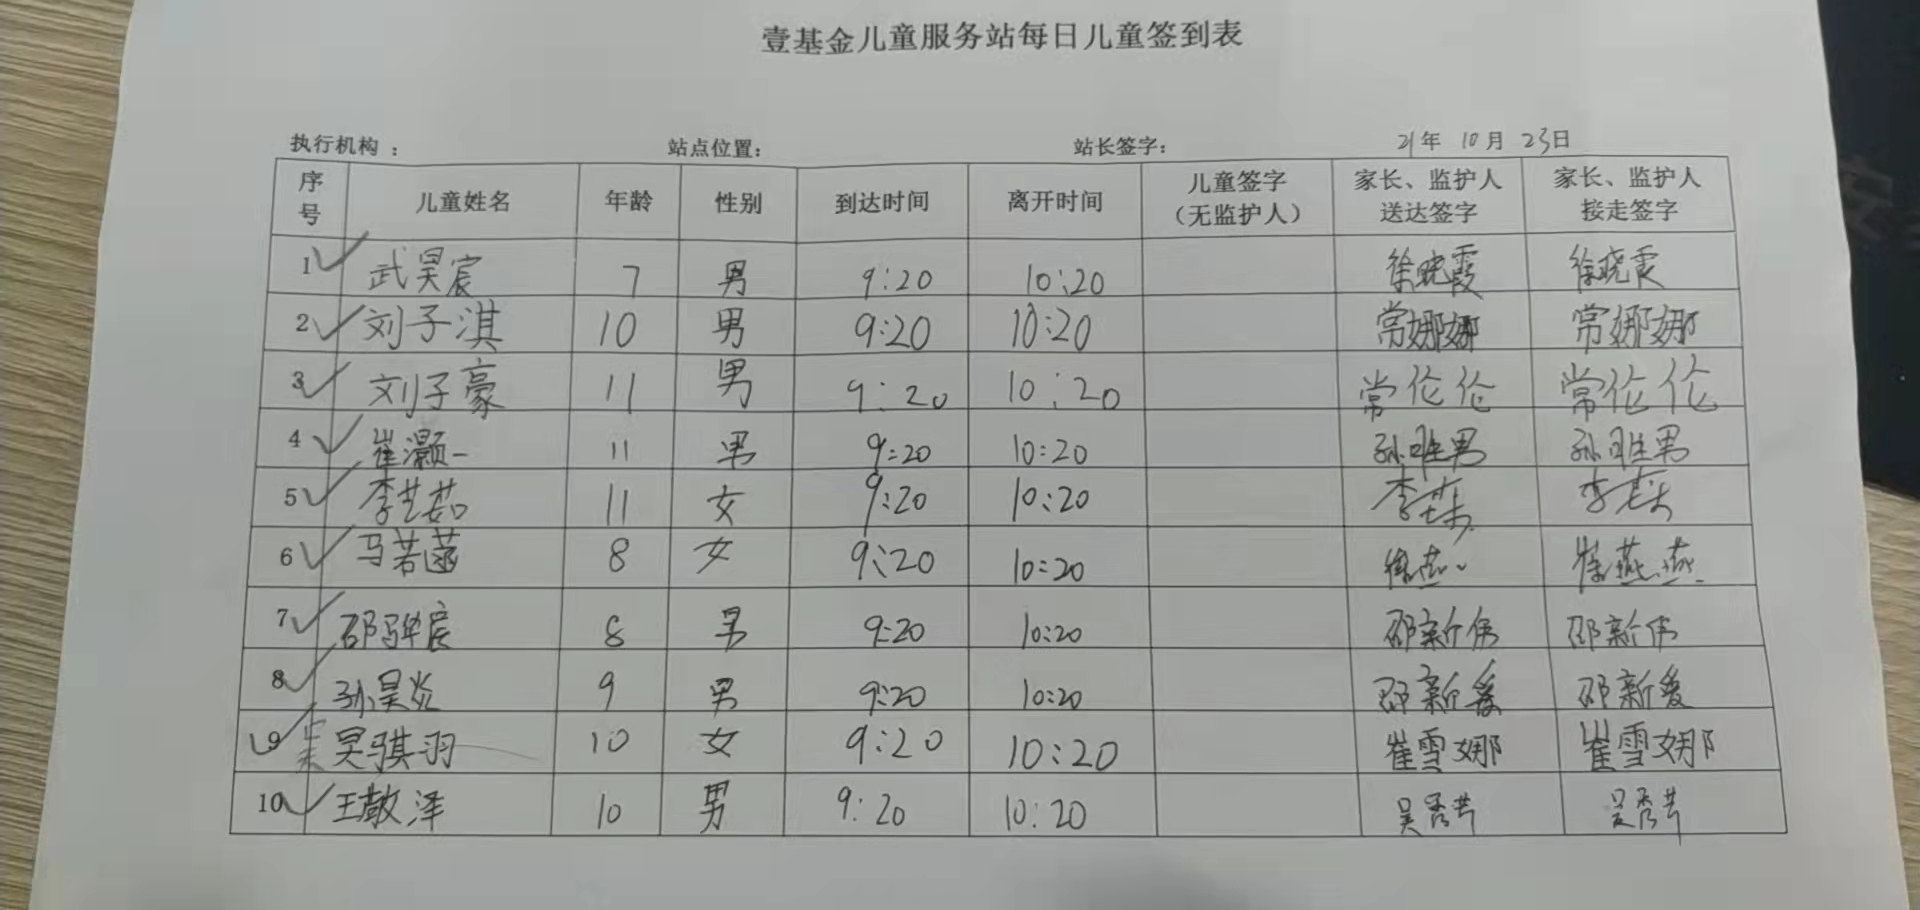 壹基金儿童服务站每日儿童签到表
执行机构： 站点位置： 站长签字： 21年 10月 23日
序号 儿童姓名 年龄 性别 到达时间 离开时间 儿童签字（无监护人） 家长、监护人送达签字 家长、监护人接走签字
1 武昊宸 7 男 9:20 10:20 徐晓霞 徐晓霞
2 刘子淇 10 男 9:20 10:20 常娜娜 常娜娜
3 刘子豪 11 男 9:20 10:20 常伦伦 常伦伦
4 崔灏一 11 男 9:20 10:20 孙胜男 孙胜男
5 李艺茹 11 女 9:20 10:20 李 李
6 马若菡 8 女 9:20 10:20 崔燕燕
7 邵骅宸 8 男 9:20 10:20 邵新伟 邵新伟
8 孙昊炎 9 男 9:20 10:20 邵新爱 邵新爱
9 吴骐羽 10 女 9:20 10:20 崔雪娜 崔雪娜
10 王敬泽 10 男 9:20 10:20 吴秀芹 吴秀芹